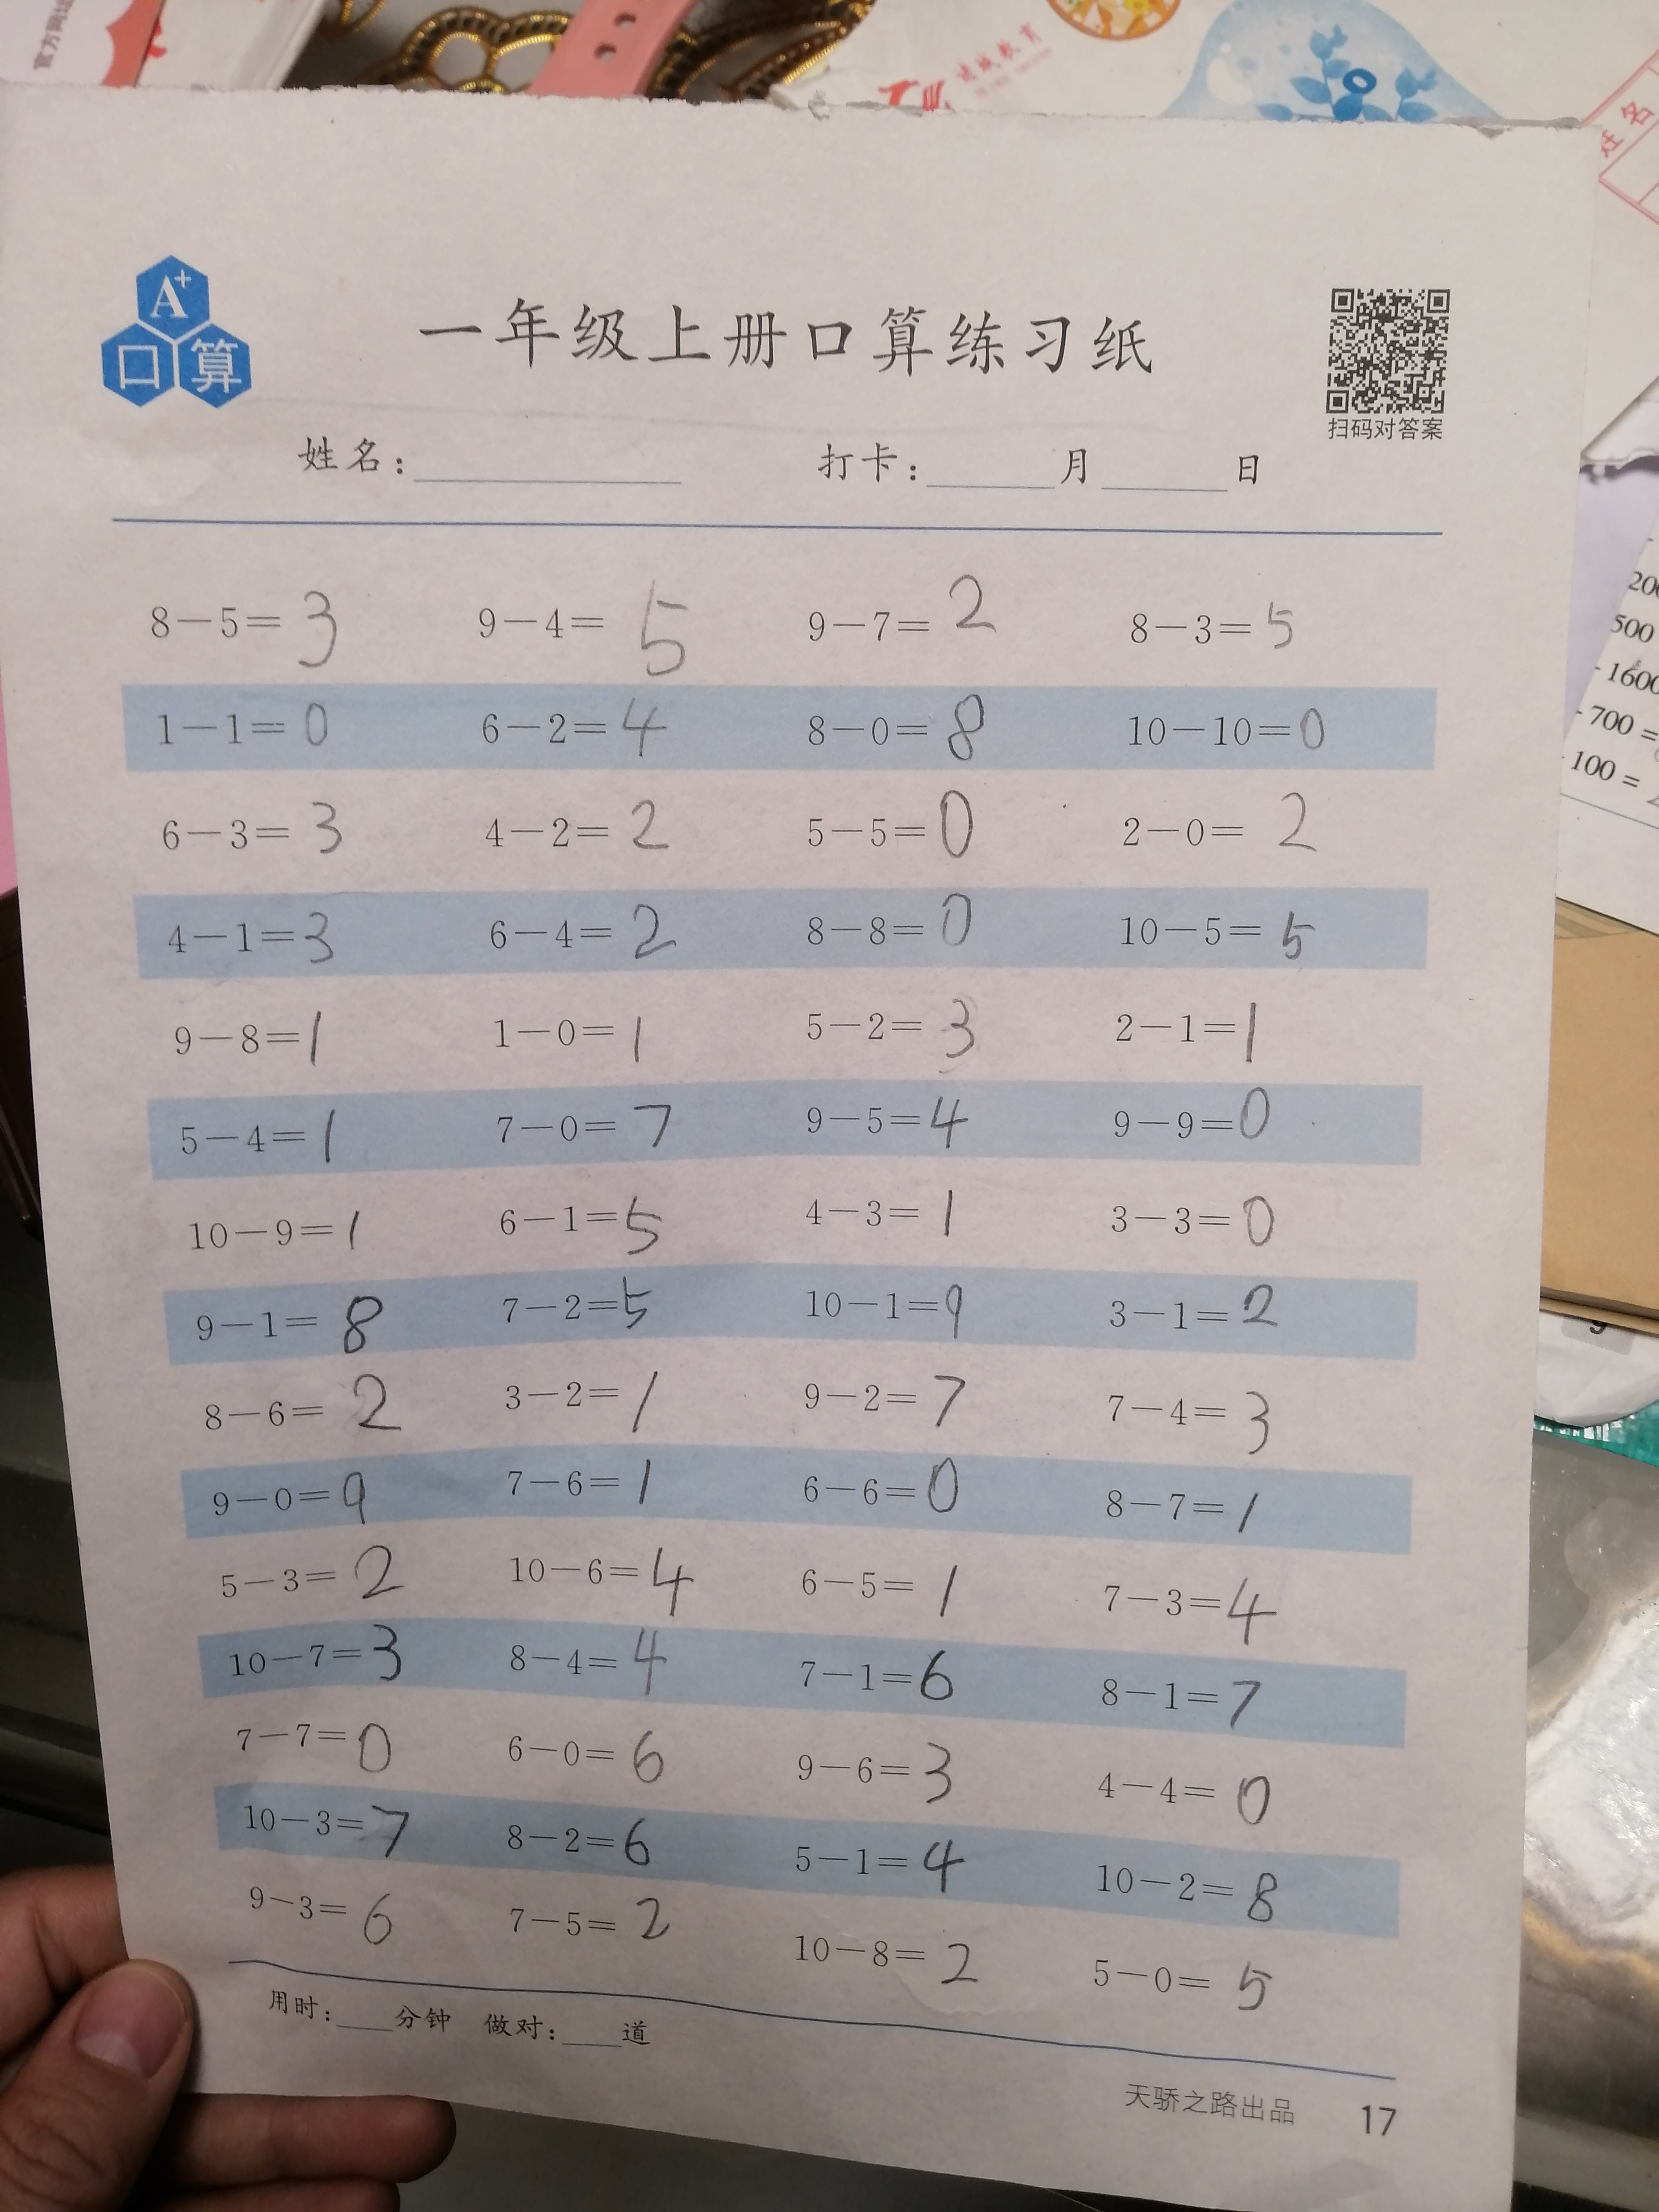 官方网站
姓名
A+
口算
一年级上册口算练习纸
扫码对答案
姓名：______ 打卡：____月____日
8－5＝3 9－4＝5 9－7＝2 8－3＝5
1－1＝0 6－2＝4 8－0＝8 10－10＝0
6－3＝3 4－2＝2 5－5＝0 2－0＝2
4－1＝3 6－4＝2 8－8＝0 10－5＝5
9－8＝1 1－0＝1 5－2＝3 2－1＝1
5－4＝1 7－0＝7 9－5＝4 9－9＝0
10－9＝1 6－1＝5 4－3＝1 3－3＝0
9－1＝8 7－2＝5 10－1＝9 3－1＝2
8－6＝2 3－2＝1 9－2＝7 7－4＝3
9－0＝9 7－6＝1 6－6＝0 8－7＝1
5－3＝2 10－6＝4 6－5＝1 7－3＝4
10－7＝3 8－4＝4 7－1＝6 8－1＝7
7－7＝0 6－0＝6 9－6＝3 4－4＝0
10－3＝7 8－2＝6 5－1＝4 10－2＝8
9－3＝6 7－5＝2 10－8＝2 5－0＝5
用时：___分钟 做对：___道
天骄之路出品 17
500
-1600
-700 =
100 =